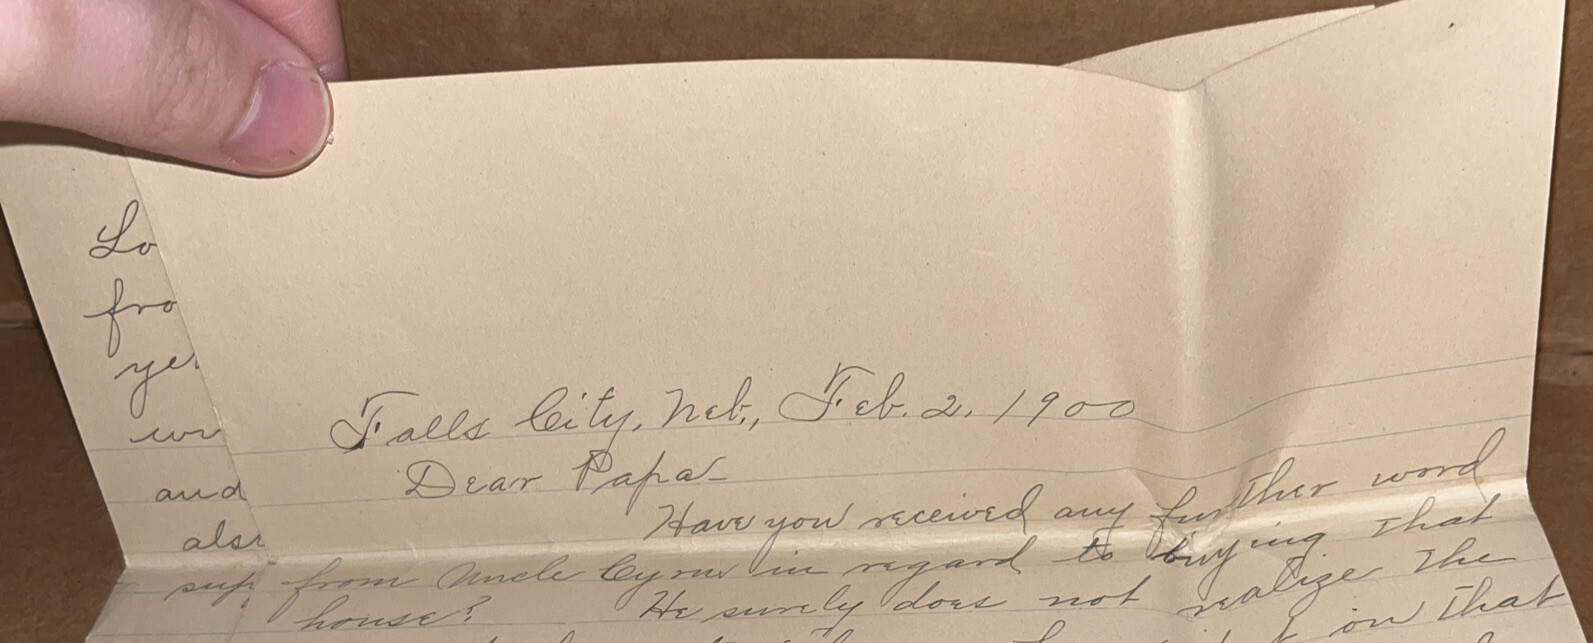 Lo
fro
ye
wr
and
als
sup
Falls City, Neb., Feb. 2, 1900
Dear Papa-
Have you received any further word
from Uncle Cyrus in regard to buying that
house? He surely does not realize the
on that